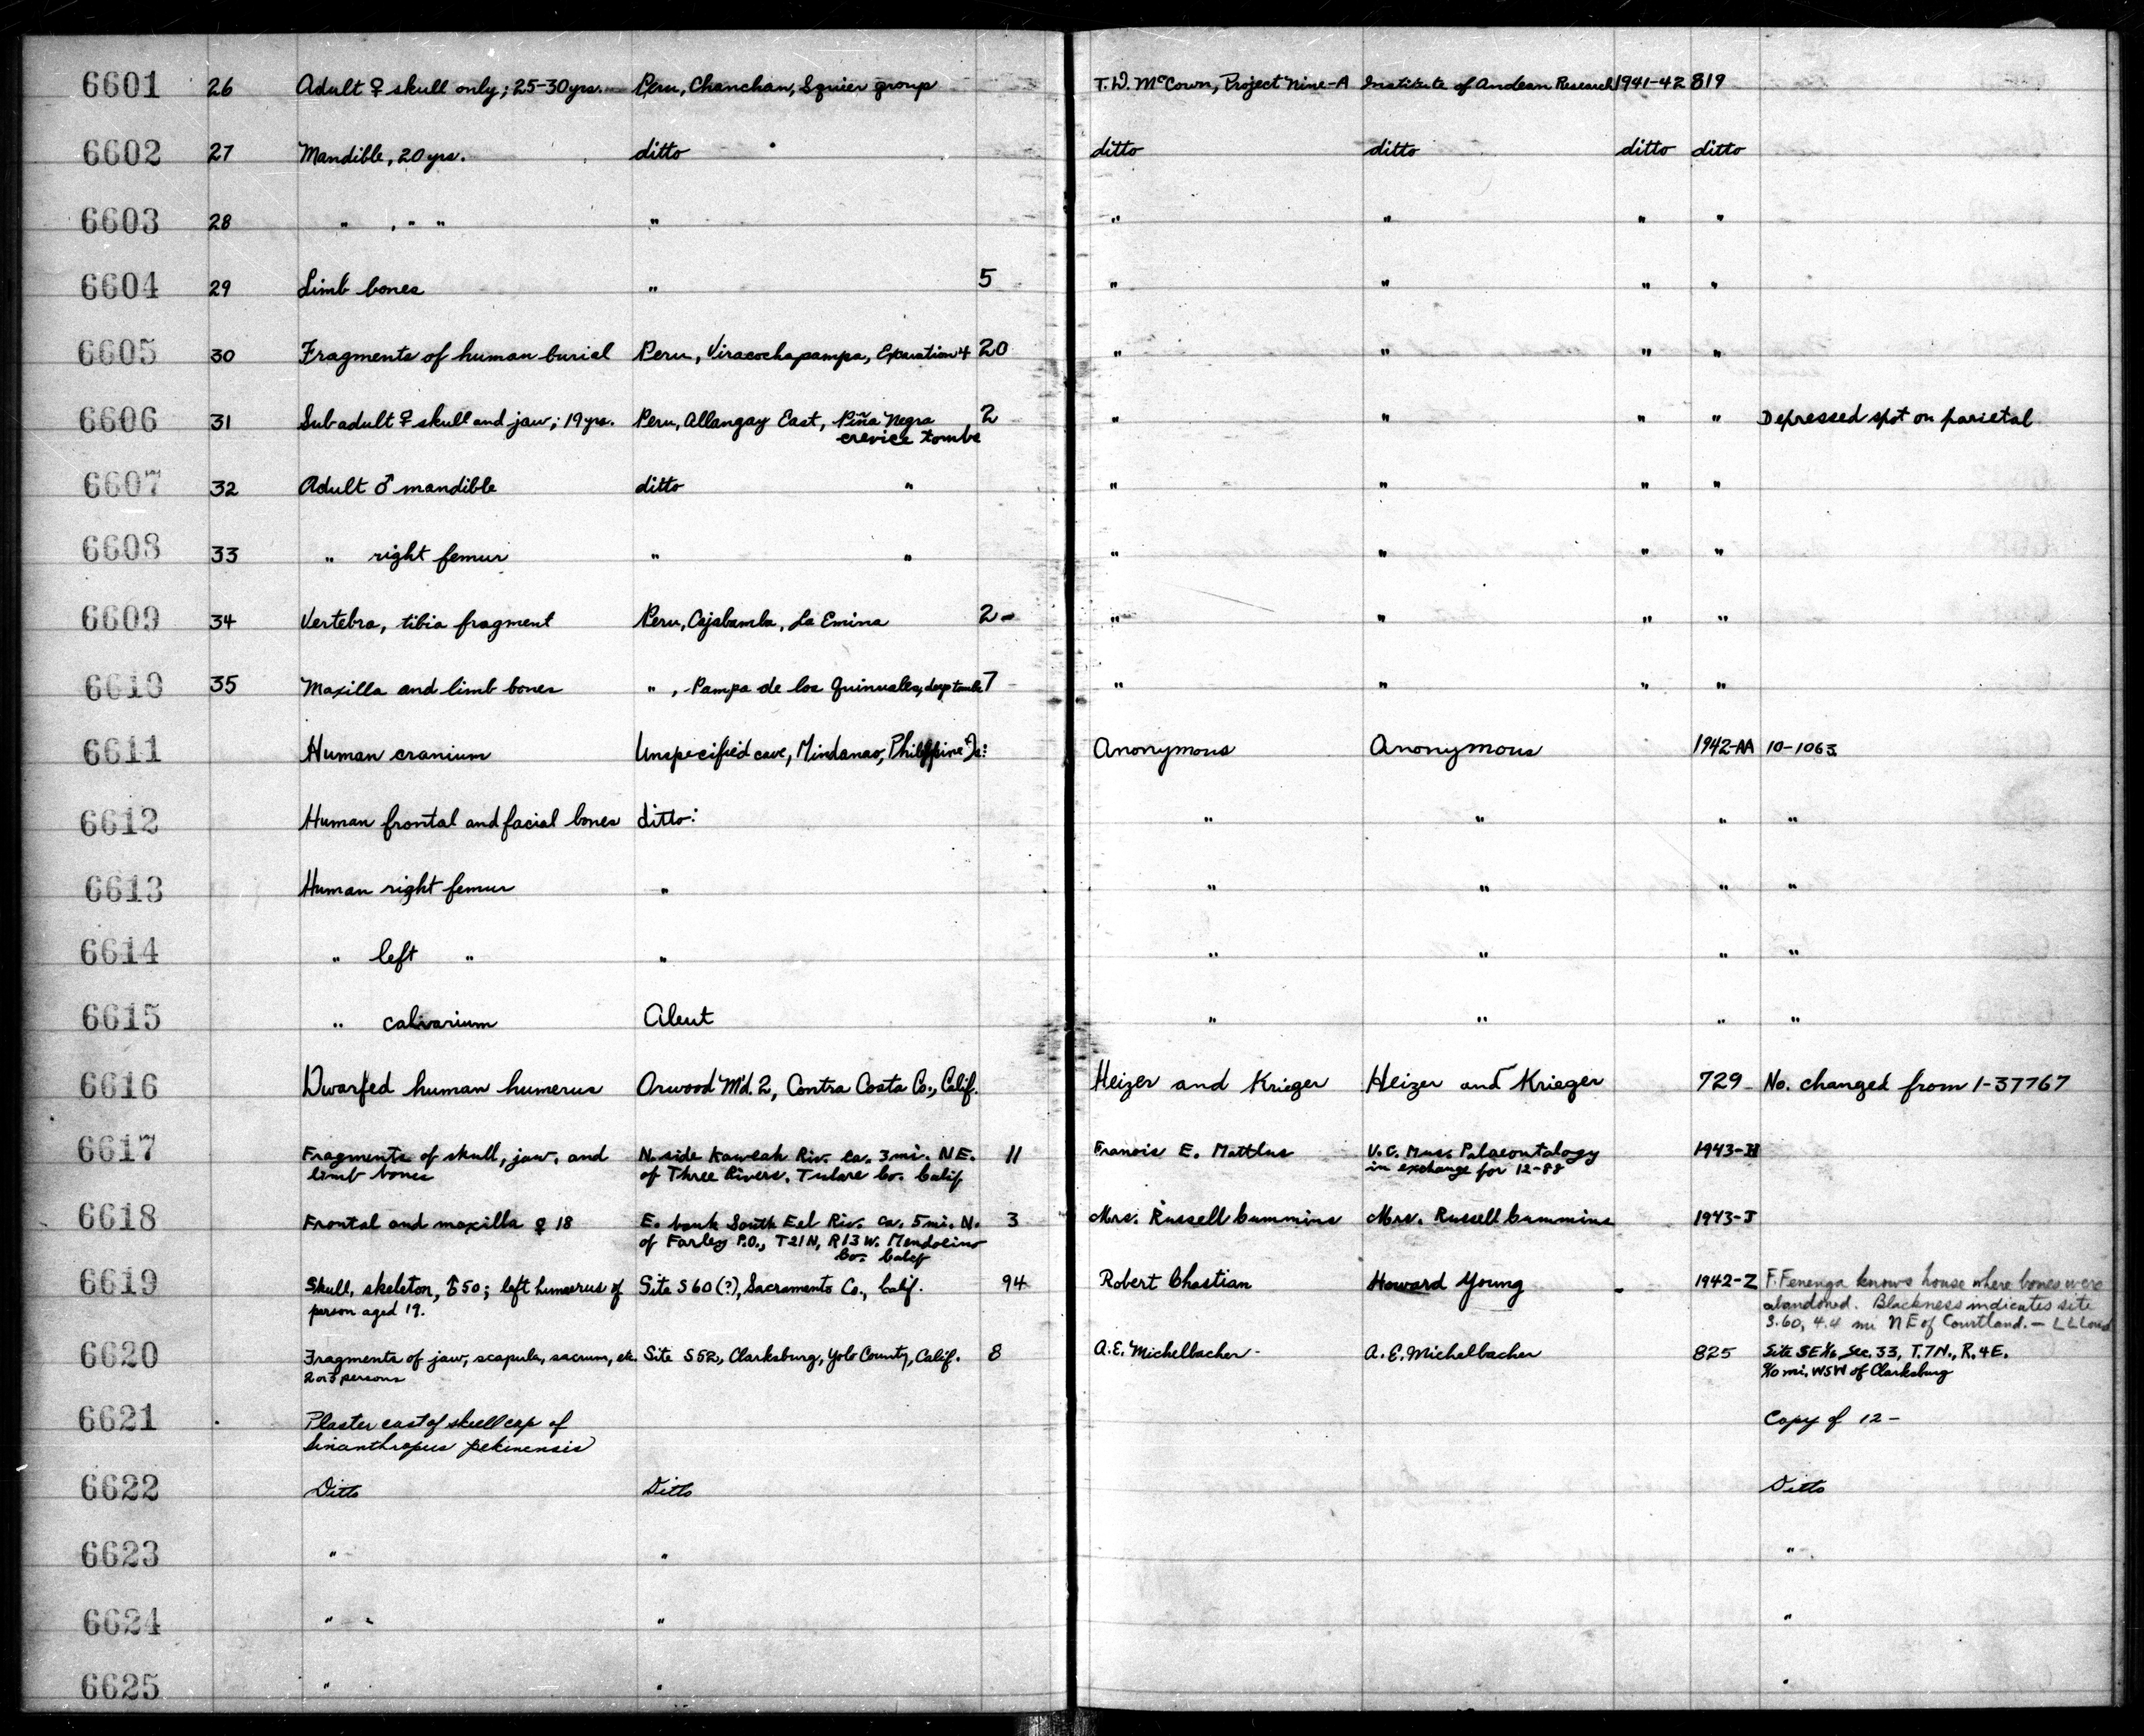 6601 26 Adult ♀ skull only; 25-30 yrs. Peru, Chanchan, Squier group T. D. McCown, Project Nine-A Institute of Andean Research 1941-42 819
6602 27 Mandible, 20 yrs. ditto ditto ditto ditto ditto
6603 28 " , " " " " " " "
6604 29 Limb bones " 5 " " " "
6605 30 Fragments of human burial Peru, Viracochapampa, Excavation 4 20 " " " "
6606 31 Subadult ♀ skull and jaw; 19 yrs. Peru, Allangay East, Piña Negra 2 " " " " Depressed spot on parietal
crevice tombs
6607 32 Adult ♂ mandible ditto " " " " "
6608 33 " right femur " " " " " "
6609 34 Vertebra, tibia fragment Peru, Cajabamba, La Emina 2 - " " " "
6610 35 Maxilla and limb bones " , Pampa de los Quinuales, deep tombs 7 " " " "
6611 Human cranium Unspecified cave, Mindanao, Philippine Is: Anonymous Anonymous 1942-AA 10-1063
6612 Human frontal and facial bones ditto: " " " "
6613 Human right femur " " " " "
6614 " left " " " " " "
6615 " calvarium Aleut " " " "
6616 Dwarfed human humerus Orwood M'd. 2, Contra Costa Co., Calif. Heizer and Krieger Heizer and Krieger 729 No. changed from 1-37767
6617 Fragments of skull, jaw, and N. side Kaweah Riv. ca. 3 mi. NE. 11 Francis E. U.C. Mus. Palaeontology 1943-
limb bones of Three Rivers, Tulare Co. Calif in exchange for 12-88
6618 Frontal and maxilla ♀ 18 E. bank South Eel Riv. ca. 5 mi. N. 3 Mrs. Russell Cummins Mrs. Russell Cummins 1943-J
of Farley P.O., T21N, R13W. Mendocino
Co. Calif
6619 Skull, skeleton, ♂ 50; left humerus of Site S60 (?), Sacramento Co., Calif. 94 Robert Chastian Howard Young 1942-Z F. Fenenga knows house where bones were
person aged 19. abandoned. Blackness indicates site
S.60, 4.4 mi NE of Courtland. — L L Loud
6620 Fragments of jaw, scapula, sacrum, etc. Site S52, Clarksburg, Yolo County, Calif. 8 A.E. Michelbacher A.E. Michelbacher 825 Site SE¼, Sec. 33, T.7N., R.4E.
2 or 3 persons mi. WSW of Clarksburg
6621 Plaster cast of skull cap of Copy of 12-
Sinanthropus pekinensis
6622 Ditto Ditto Ditto
6623 " " "
6624 " " " "
6625 " " "